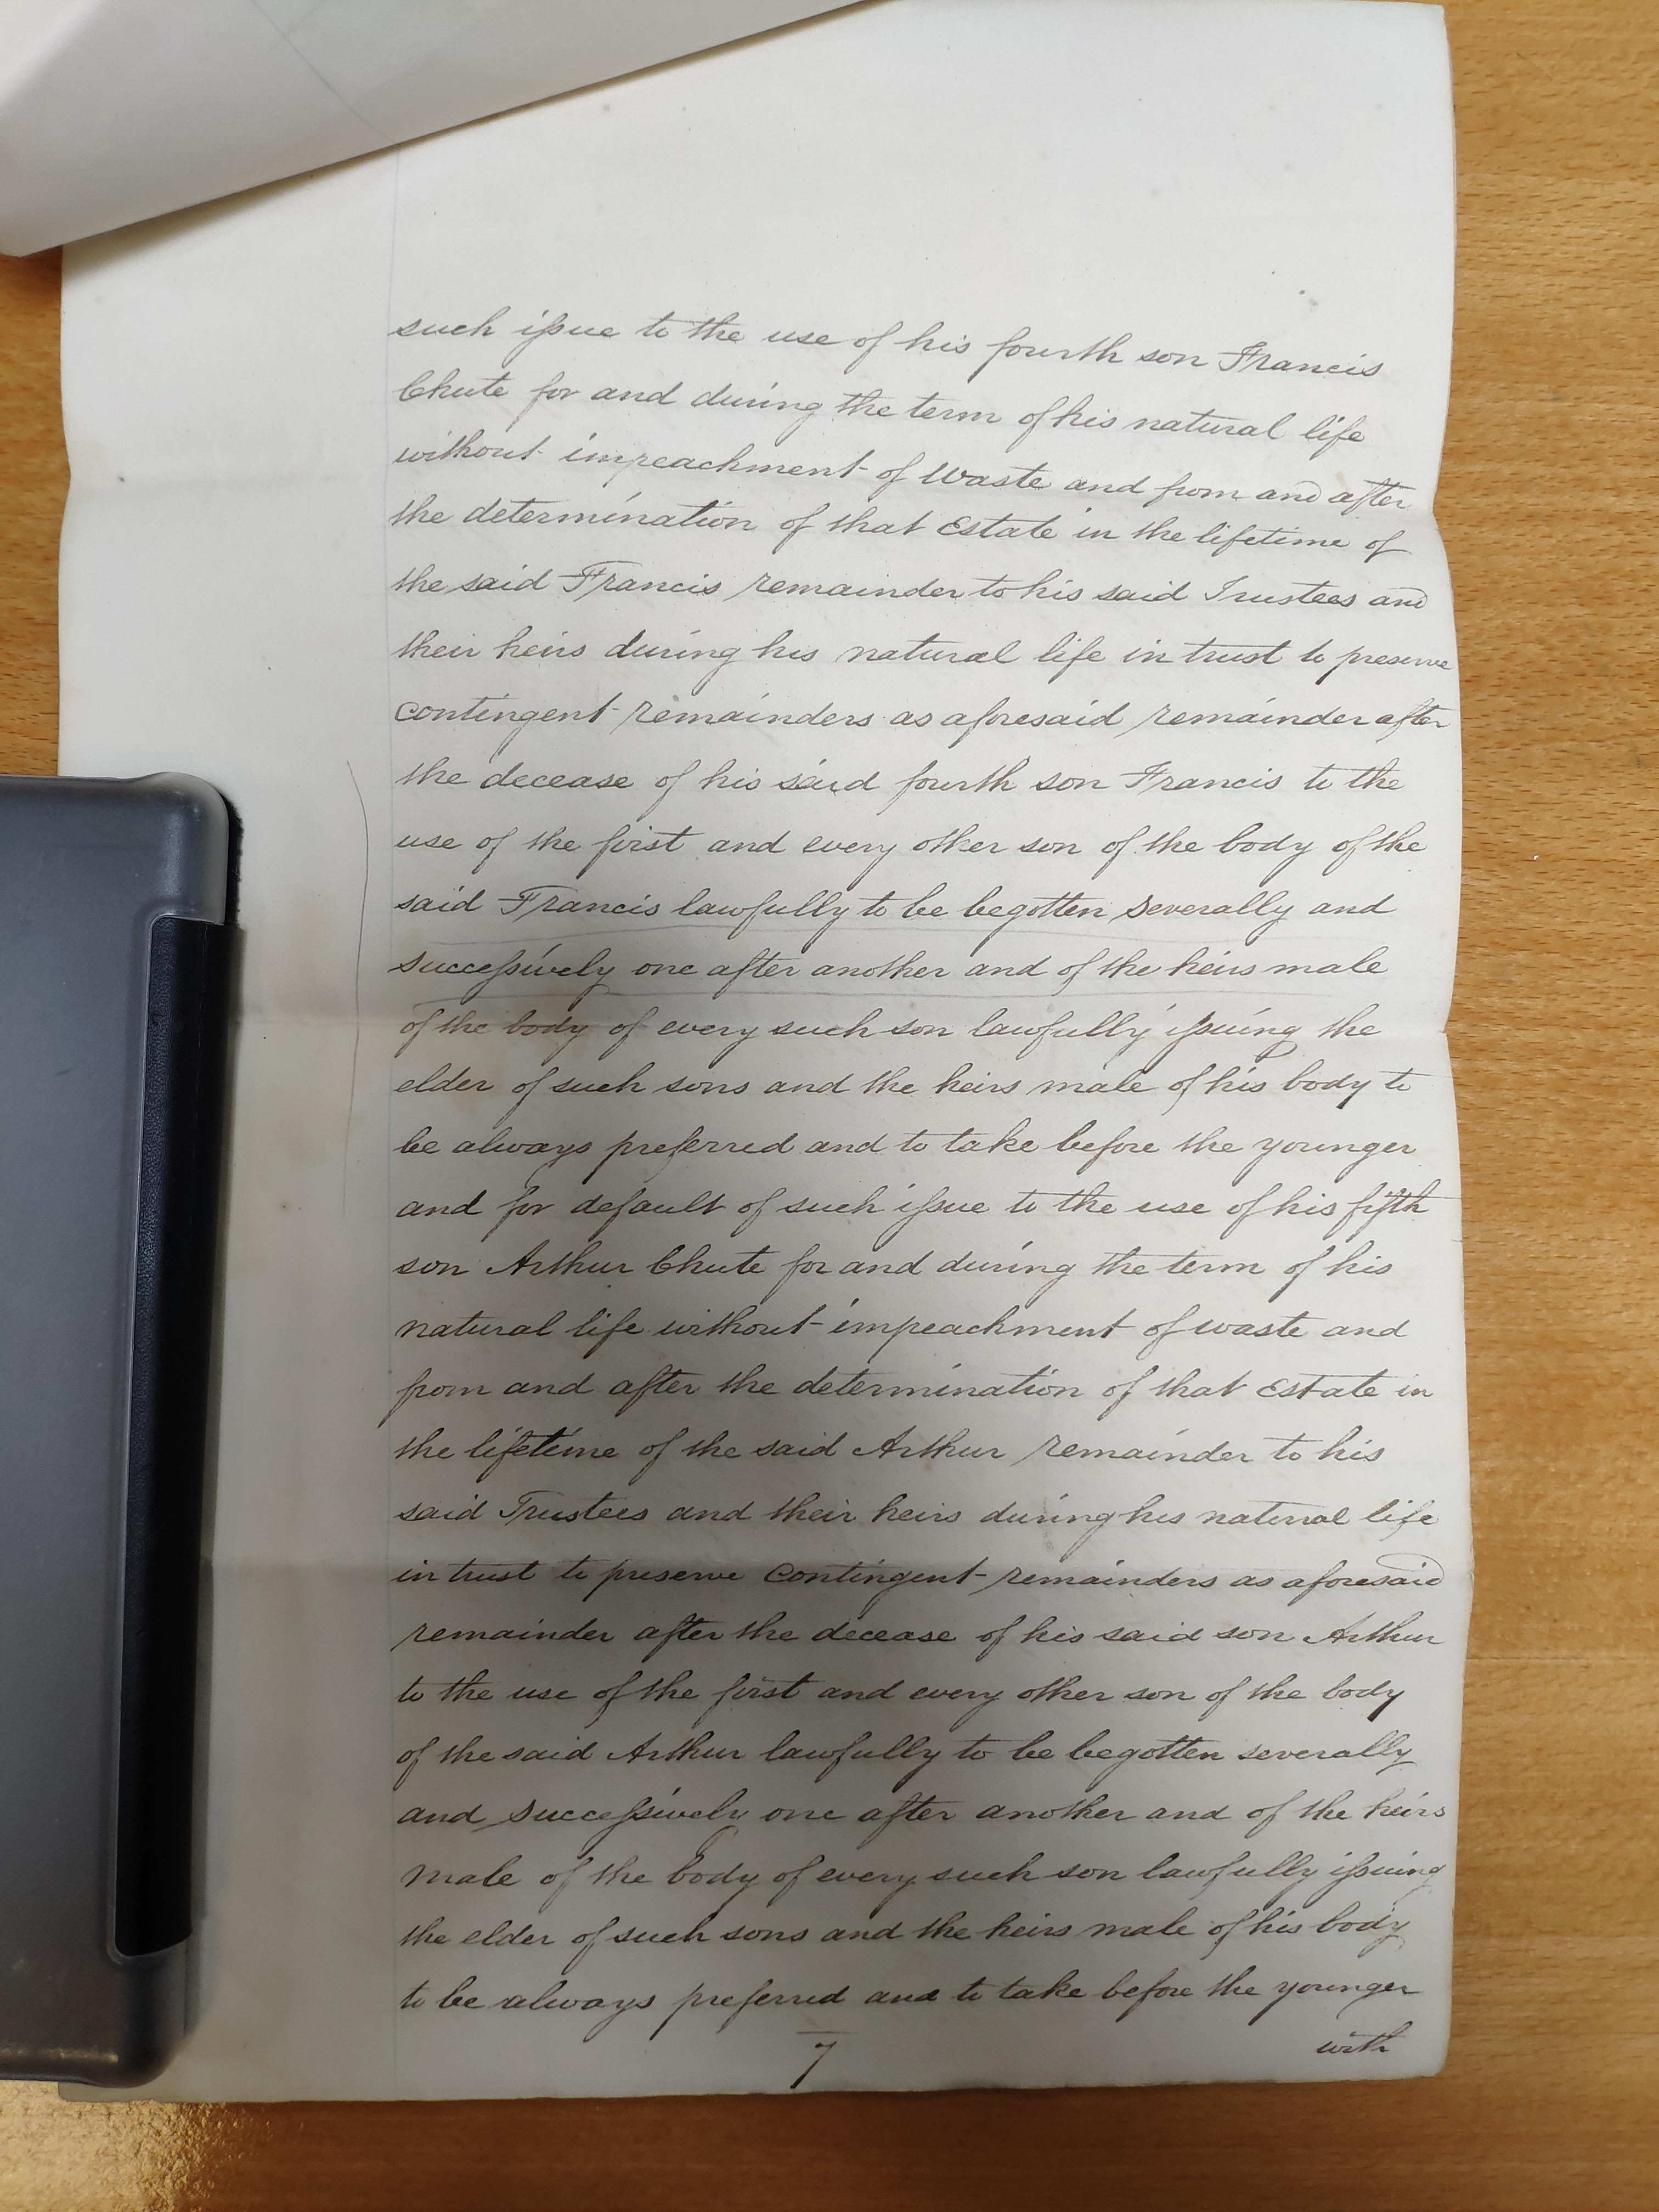 such issue to the use of his fourth son Francis
Chute for and during the term of his natural life
without impeachment of Waste and from and after
the determination of that Estate in the lifetime of
the said Francis remainder to his said Trustees and
their heirs during his natural life in trust to preserve
contingent remainders as aforesaid remainder after
the decease of his said fourth son Francis to the
use of the first and every other son of the body of the
said Francis lawfully to be begotten severally and
successively one after another and of the heirs male
of the body of every such son lawfully issuing the
elder of such sons and the heirs male of his body to
be always preferred and to take before the younger
and for default of such issue to the use of his fifth
son Arthur Chute for and during the term of his
natural life without impeachment of waste and
from and after the determination of that Estate in
the lifetime of the said Arthur remainder to his
said Trustees and their heirs during his natural life
in trust to preserve Contingent remainders as aforesaid
remainder after the decease of his said son Arthur
to the use of the first and every other son of the body
of the said Arthur lawfully to be begotten severally
and successively one after another and of the heirs
male of the body of every such son lawfully issuing
the elder of such sons and the heirs male of his body
to be always preferred and to take before the younger
with
7